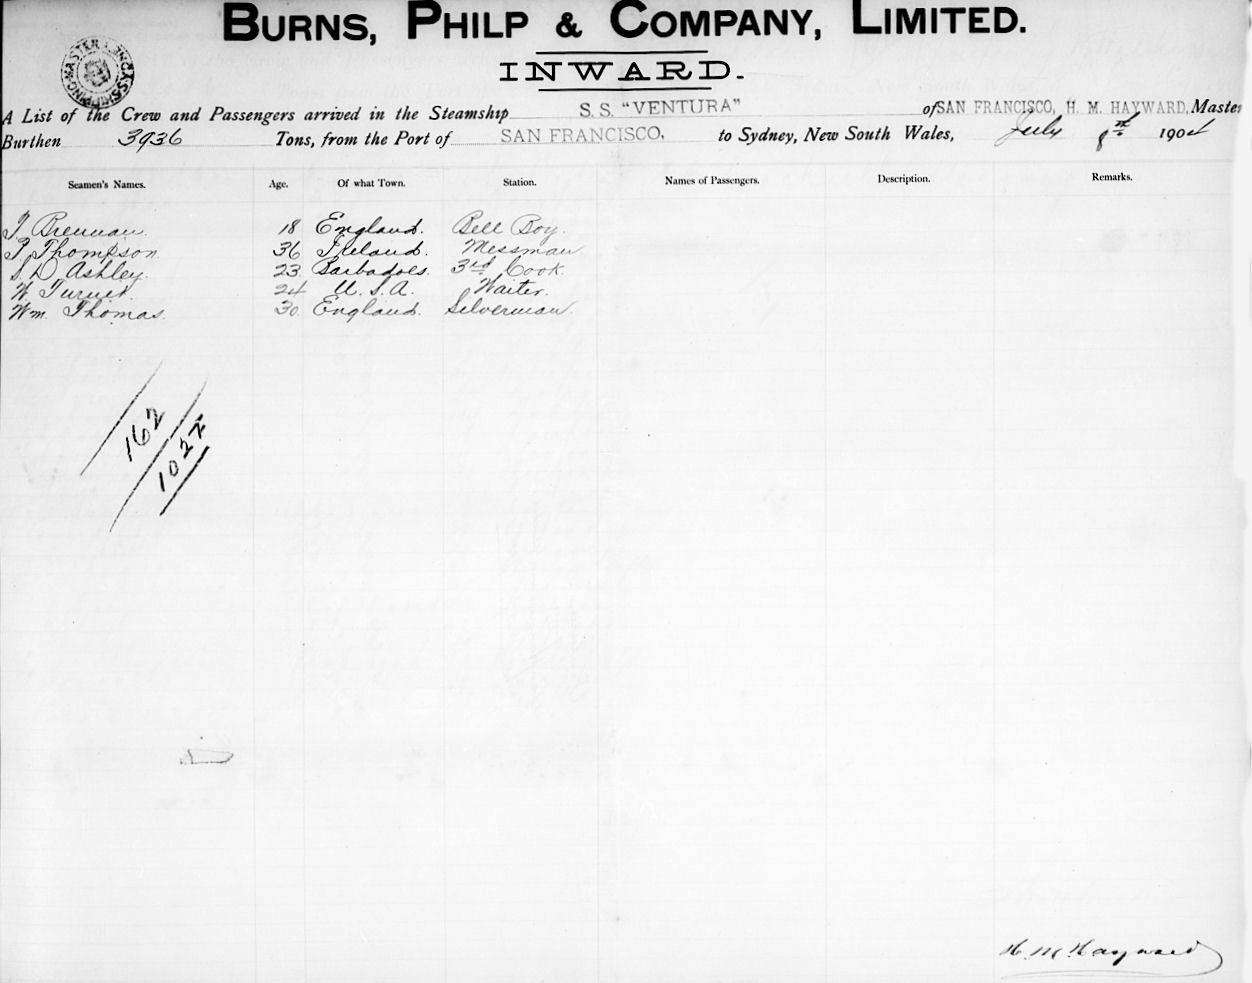 BURNS, PHILP & COMPANY, LIMITED.
INWARD.
SHIPPING MASTER
A List of the Crew and Passengers arrived in the Steamship S. S. "VENTURA" of SAN FRANCISCO, H. M. HAYWARD, Master
Burthen 3936 Tons, from the Port of SAN FRANCISCO, to Sydney, New South Wales, July 1904
Seamen's Names. Age. Of what Town. Station. Names of Passengers. Description. Remarks.
Brennan. 18 England. Bell Boy.
Thompson 36 Ireland. Messman
S. D. Ashley. 23 Barbadoes. 3rd Cook.
W. Turner. 24 U. S. A. Waiter.
Wm. Thomas. 30 England. Silverman.
162
1022
H. M. Hayward